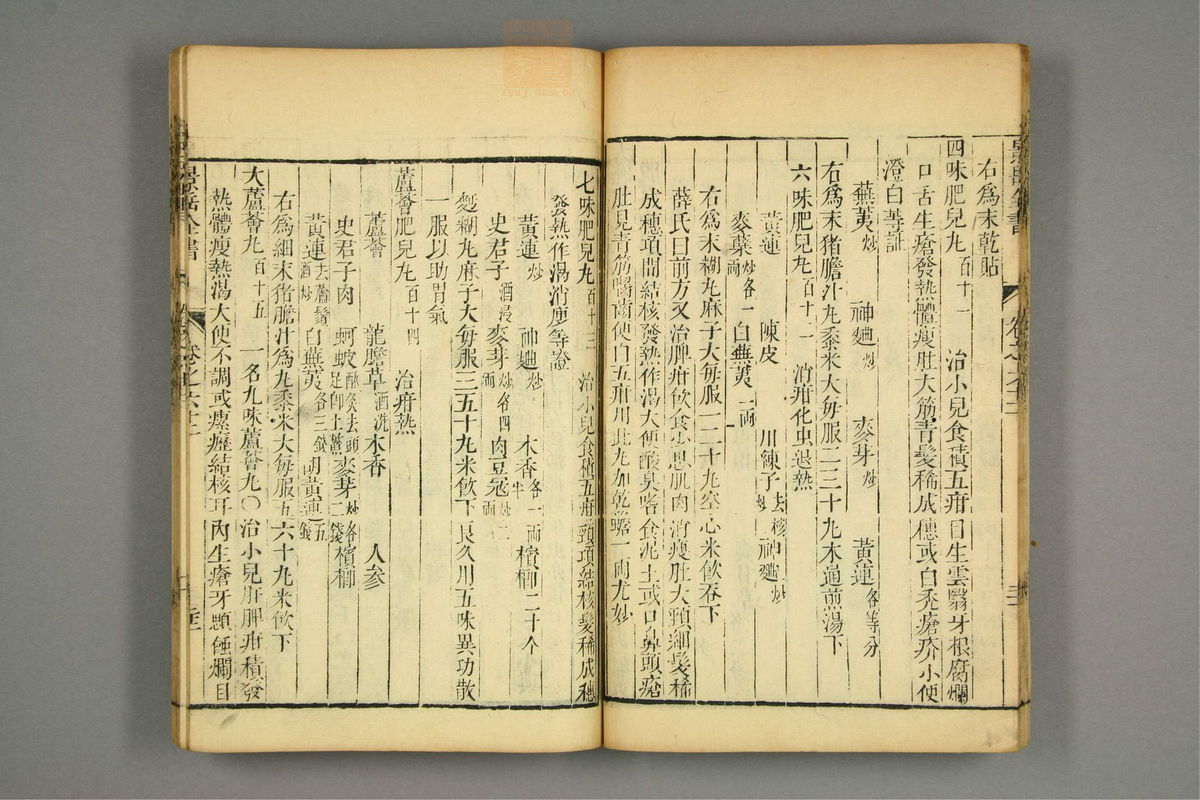 右爲末乾貼
四味肥兒丸百十一 治小兒食積五疳目生雲翳牙根腐爛
口舌生瘡發熱體瘦肚大筋青髮稀成穗或白禿瘡疥小便
澄白等証
蕪荑炒 神麯炒 麥芽炒 黃連各等分
右爲末猪膽汁丸黍米大每服二三十丸木通煎湯下
六味肥兒丸百十二 消疳化虫退熱
黃連 陳皮 川練子去核炒 神麯炒
麥蘖炒各一兩 白蕪荑一兩
右爲末糊丸麻子大每服一二十丸空心米飲吞下
薛氏曰前方又治脾疳飲食少思肌肉消瘦肚大頸細髮稀
成穗項間結核發熱作渴大便酸臭嗜食泥土或口鼻頭瘡
肚見青筋嚙齒便白五疳用此丸加乾蟾一兩尤妙
七味肥兒丸百十三 治小兒食積五疳頸項結核髮稀成穗
發熱作渴消瘦等證
黃連炒 神麯炒 木香各一兩半 檳榔二十个
史君子酒浸 麥芽炒各四兩 肉豆蔻炒二兩
麪糊丸麻子大每服三五十丸米飲下良久用五味異功散
一服以助胃氣
蘆薈肥兒丸百十四 治疳熱
蘆薈 龍膽草酒洗 木香 人參
史君子肉 蚵蚾酥炙去頭足即土鱉 麥芽炒各二錢 檳榔
黃連去蘆鬚酒炒 白蕪荑各三錢 胡黃連五錢
右爲細末猪膽汁爲丸黍米大每服五六十丸米飲下
大蘆薈丸百十五 一名九味蘆薈丸〇治小兒肝脾疳積發
熱體瘦熱渴大便不調或瘰癧結核耳內生瘡牙顋蝕爛目
景岳全書
卷之六十二